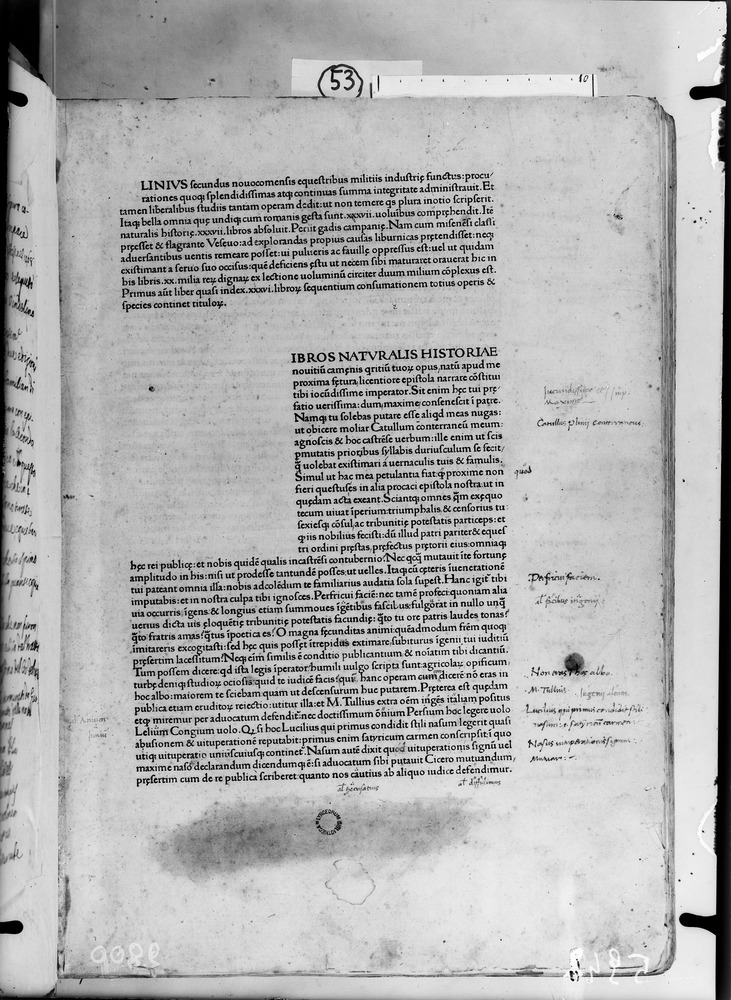 53
10
LINIVS secundus nouocomensis equestribus militiis industrię functus: procu
rationes quoq; splendidissimas atq; continuas summa integritate administrauit. Et
tamen liberalibus studiis tantam operam dedit: ut non temere q̄s plura inotio scripserit.
Itaq; bella omnia quę undiq; cum romanis gesta sunt .xxxvii. uoluībus comprehendit. Itē
naturalis historię .xxxvii. libros absoluit. Periit gladis campanię. Nam cum misenēsi classi
pręesset & flagrante Vesęuo: ad explorandas propius causas liburnicas prętendisset: neq;
aduersantibus uentis remeare posset: ui pulueris ac fauillę oppressus est: uel ut quidam
existimant a seruo suo occisus: quē deficiens ęstu ut necem sibi maturaret orauerat hic in
his libris .xx. milia reꝝ dignaꝝ ex lectione uoluminū circiter duum milium cōplexus est.
Primus aūt liber quasi index .xxxvi. libroꝝ sequentium consumationem totius operis &
species continet tituloꝝ.
IBROS NATVRALIS HISTORIAE
nouitiū camęnis qritiū tuoꝝ opus, natū apud me
proxima fętura, licentiore epistola narrare cōstitui
tibi iocūdissime imperator. Sit enim hęc tui prę
fatio uerissima: dum, maxime, consenescit ī patre.
Namq; tu solebas putare esse aliqd meas nugas:
ut obicere moliar Catullum conterraneū meum:
agnoscis & hoc castrēse uerbum: ille enim ut scis
pmutatis prioribus syllabis duriusculum se fecit,
q̄ uolebat existimari a uernaculis tuis & famulis.
Simul ut hac mea petulantia fiat: q proxime non
fieri questus es in alia procaci epistola nostra: ut in
quędam acta exeant. Sciantq; omnes q̄m exęquo
tecum uiuat īperium: triumphalis, & censorius tu:
sexiesq; cōsul, ac tribunitię potestatis particeps: et
q iis nobilius fecisti: dū illud patri pariter & eques
tri ordini pręstas, pręfectus prętorii eius: omniaq;
hęc rei publicę: et nobis quidē qualis incastrēsi contubernio? Nec qcq̄ mutauit īte fortunę
amplitudo in his: nisi ut prodesse tantundē posses: ut uelles. Itaq; cū cęteris īuenerationē
tui pateant omnia illa: nobis adcolēdum te familiarius audatia sola supest. Hanc igit' tibi
imputabis: et in nostra culpa tibi ignosces. Perfricui faciē: nec tamē profeci: quoniam alia
uia occurris, īgens: & longius etiam summoues īgētibus fascibus: fulgorat in nullo unq̄
uerius dicta uis eloquētię tribunitię potestatis facundię: q̄to tu ore patris laudes tonas?
q̄to fratris amas? q̄tus īpoetica es? O magna fęcunditas animi: quēadmodum frēm quoq;
īmitareris excogitasti: sed hęc quis posset ītrepidus extimare, subiturus īgenii tui iuditiū
pręsertim lacessitum? Neq; eīm similis ē conditio publicantium & noīatim tibi dicantiū.
Tum possem dicere: qd ista legis īperator? humili uulgo scripta sunt: agricolaꝝ opificum,
turbę deniq; studioꝝ ociosis: quid te iudicē facis? quū hanc operam cum dicerē nō eras in
hoc albo: maiorem te sciebam quam ut descensurum huc putarem. Pręterea est quędam
publica etiam eruditoꝝ reiectio: utitur illa: et M. Tullius extra oēm ingēs italiam positus
etq̄ miremur per aduocatum defendit: nec doctissimum ōnium Persium hoc legere uolo
Lelium Congium uolo. Q̄ si hoc Lucilius qui primus condidit stili nasum legerit quasi
abusionem & uituperationē reputabit: primus enim satyricam carmen conscripsit: ī quo
utiq; uituperatio uniuscuiusq; continet'. Nasum autē dixit quod uituperationis signū uel
maxime nasō declarandum dicendumq; ē: si aduocatum sibi putauit Cicero mutuandum,
pręsertim cum de re publica scriberet: quanto nos cautius ab aliquo iudice defendimur.
Catullus Plinij Conterraneus.
quod
Perfricui faciem.
Non eras ī hoc albo.
M. Tullius
Lucilius qui primus condidit stili
nasum.